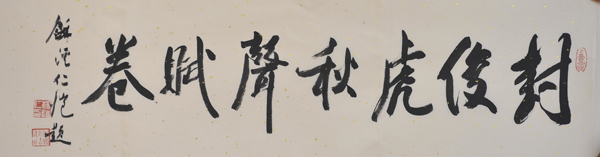 封俊虎秋聲賦卷
仁愷題